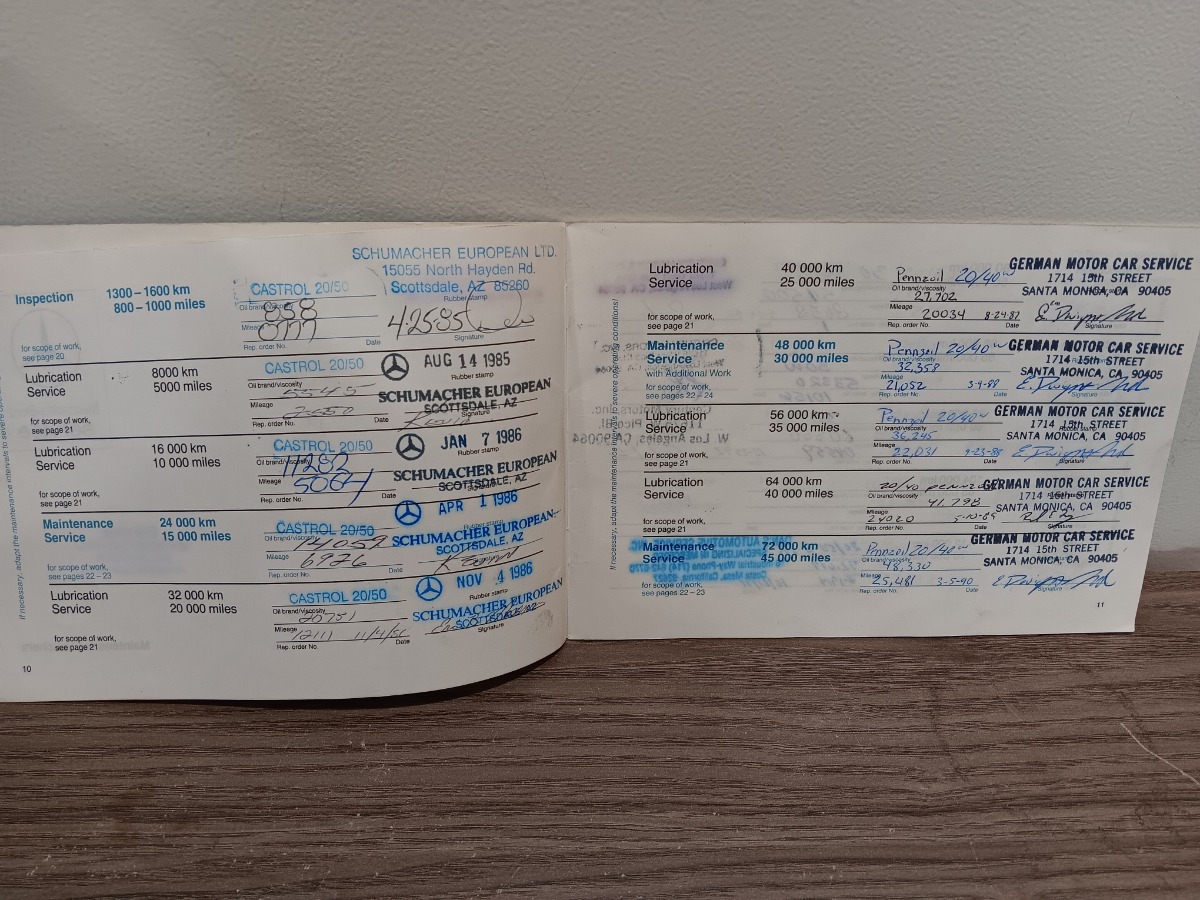 If necessary, adapt the maintenance intervals to severe
SCHUMACHER EUROPEAN LTD.
15055 North Hayden Rd.
Scottsdale, AZ 85260
Inspection 1300–1600 km
800–1000 miles
CASTROL 20/50
858
Rubber stamp
Mileage
Rep. order No. Date Signature
for scope of work,
see page 20
Lubrication 8000 km
Service 5000 miles
CASTROL 20/50
AUG 14 1985
Oil brand/viscosity
Rubber stamp
SCHUMACHER EUROPEAN
SCOTTSDALE, AZ
Mileage
Rep. order No. Date Signature
for scope of work,
see page 21
Lubrication 16 000 km
Service 10 000 miles
CASTROL 20/50
JAN 7 1986
Oil brand/viscosity
11282
Rubber stamp
SCHUMACHER EUROPEAN
SCOTTSDALE, AZ
Mileage
5064
Rep. order No. Date
for scope of work,
see page 21
Maintenance 24 000 km
Service 15 000 miles
CASTROL 20/50
APR 1 1986
Oil brand/viscosity
SCHUMACHER EUROPEAN
SCOTTSDALE, AZ
Mileage
6926
Rep. order No. Date
for scope of work,
see pages 22–23
Lubrication 32 000 km
Service 20 000 miles
CASTROL 20/50
NOV 4 1986
Oil brand/viscosity
20751
Rubber stamp
SCHUMACHER EUROPEAN
SCOTTSDALE, AZ
Mileage
12111 11/4/86
Rep. order No. Date Signature
for scope of work,
see page 21
10
If necessary, adapt the maintenance intervals to severe operating conditions!
Lubrication 40 000 km
Service 25 000 miles
Pennzoil 20/40w
Oil brand/viscosity
27,702
GERMAN MOTOR CAR SERVICE
1714 15th STREET
SANTA MONICA, CA 90405
Mileage
20034 8-24-87
Rep. order No. Date Signature
for scope of work,
see page 21
Maintenance 48 000 km
Service 30 000 miles
with Additional Work
Pennzoil 20/40w
Oil brand/viscosity
32,358
GERMAN MOTOR CAR SERVICE
1714 15th STREET
SANTA MONICA, CA 90405
Mileage
21,052 3-4-88
Rep. order No. Date Signature
for scope of work,
see pages 22–24
Lubrication 56 000 km
Service 35 000 miles
Pennzoil 20/40w
Oil brand/viscosity
36,245
GERMAN MOTOR CAR SERVICE
1714 15th STREET
SANTA MONICA, CA 90405
Mileage
22,031 9-23-88
Rep. order No. Date Signature
for scope of work,
see page 21
Lubrication 64 000 km
Service 40 000 miles
20/40 pennzoil
Oil brand/viscosity
41,798
GERMAN MOTOR CAR SERVICE
1714 15th STREET
SANTA MONICA, CA 90405
Mileage
24020 5-10-89
Rep. order No. Date Signature
for scope of work,
see page 21
Maintenance 72 000 km
Service 45 000 miles
Pennzoil 20/40w
Oil brand/viscosity
48,330
GERMAN MOTOR CAR SERVICE
1714 15th STREET
SANTA MONICA, CA 90405
Mileage
25,481 3-5-90
Rep. order No. Date Signature
for scope of work,
see pages 22–23
11